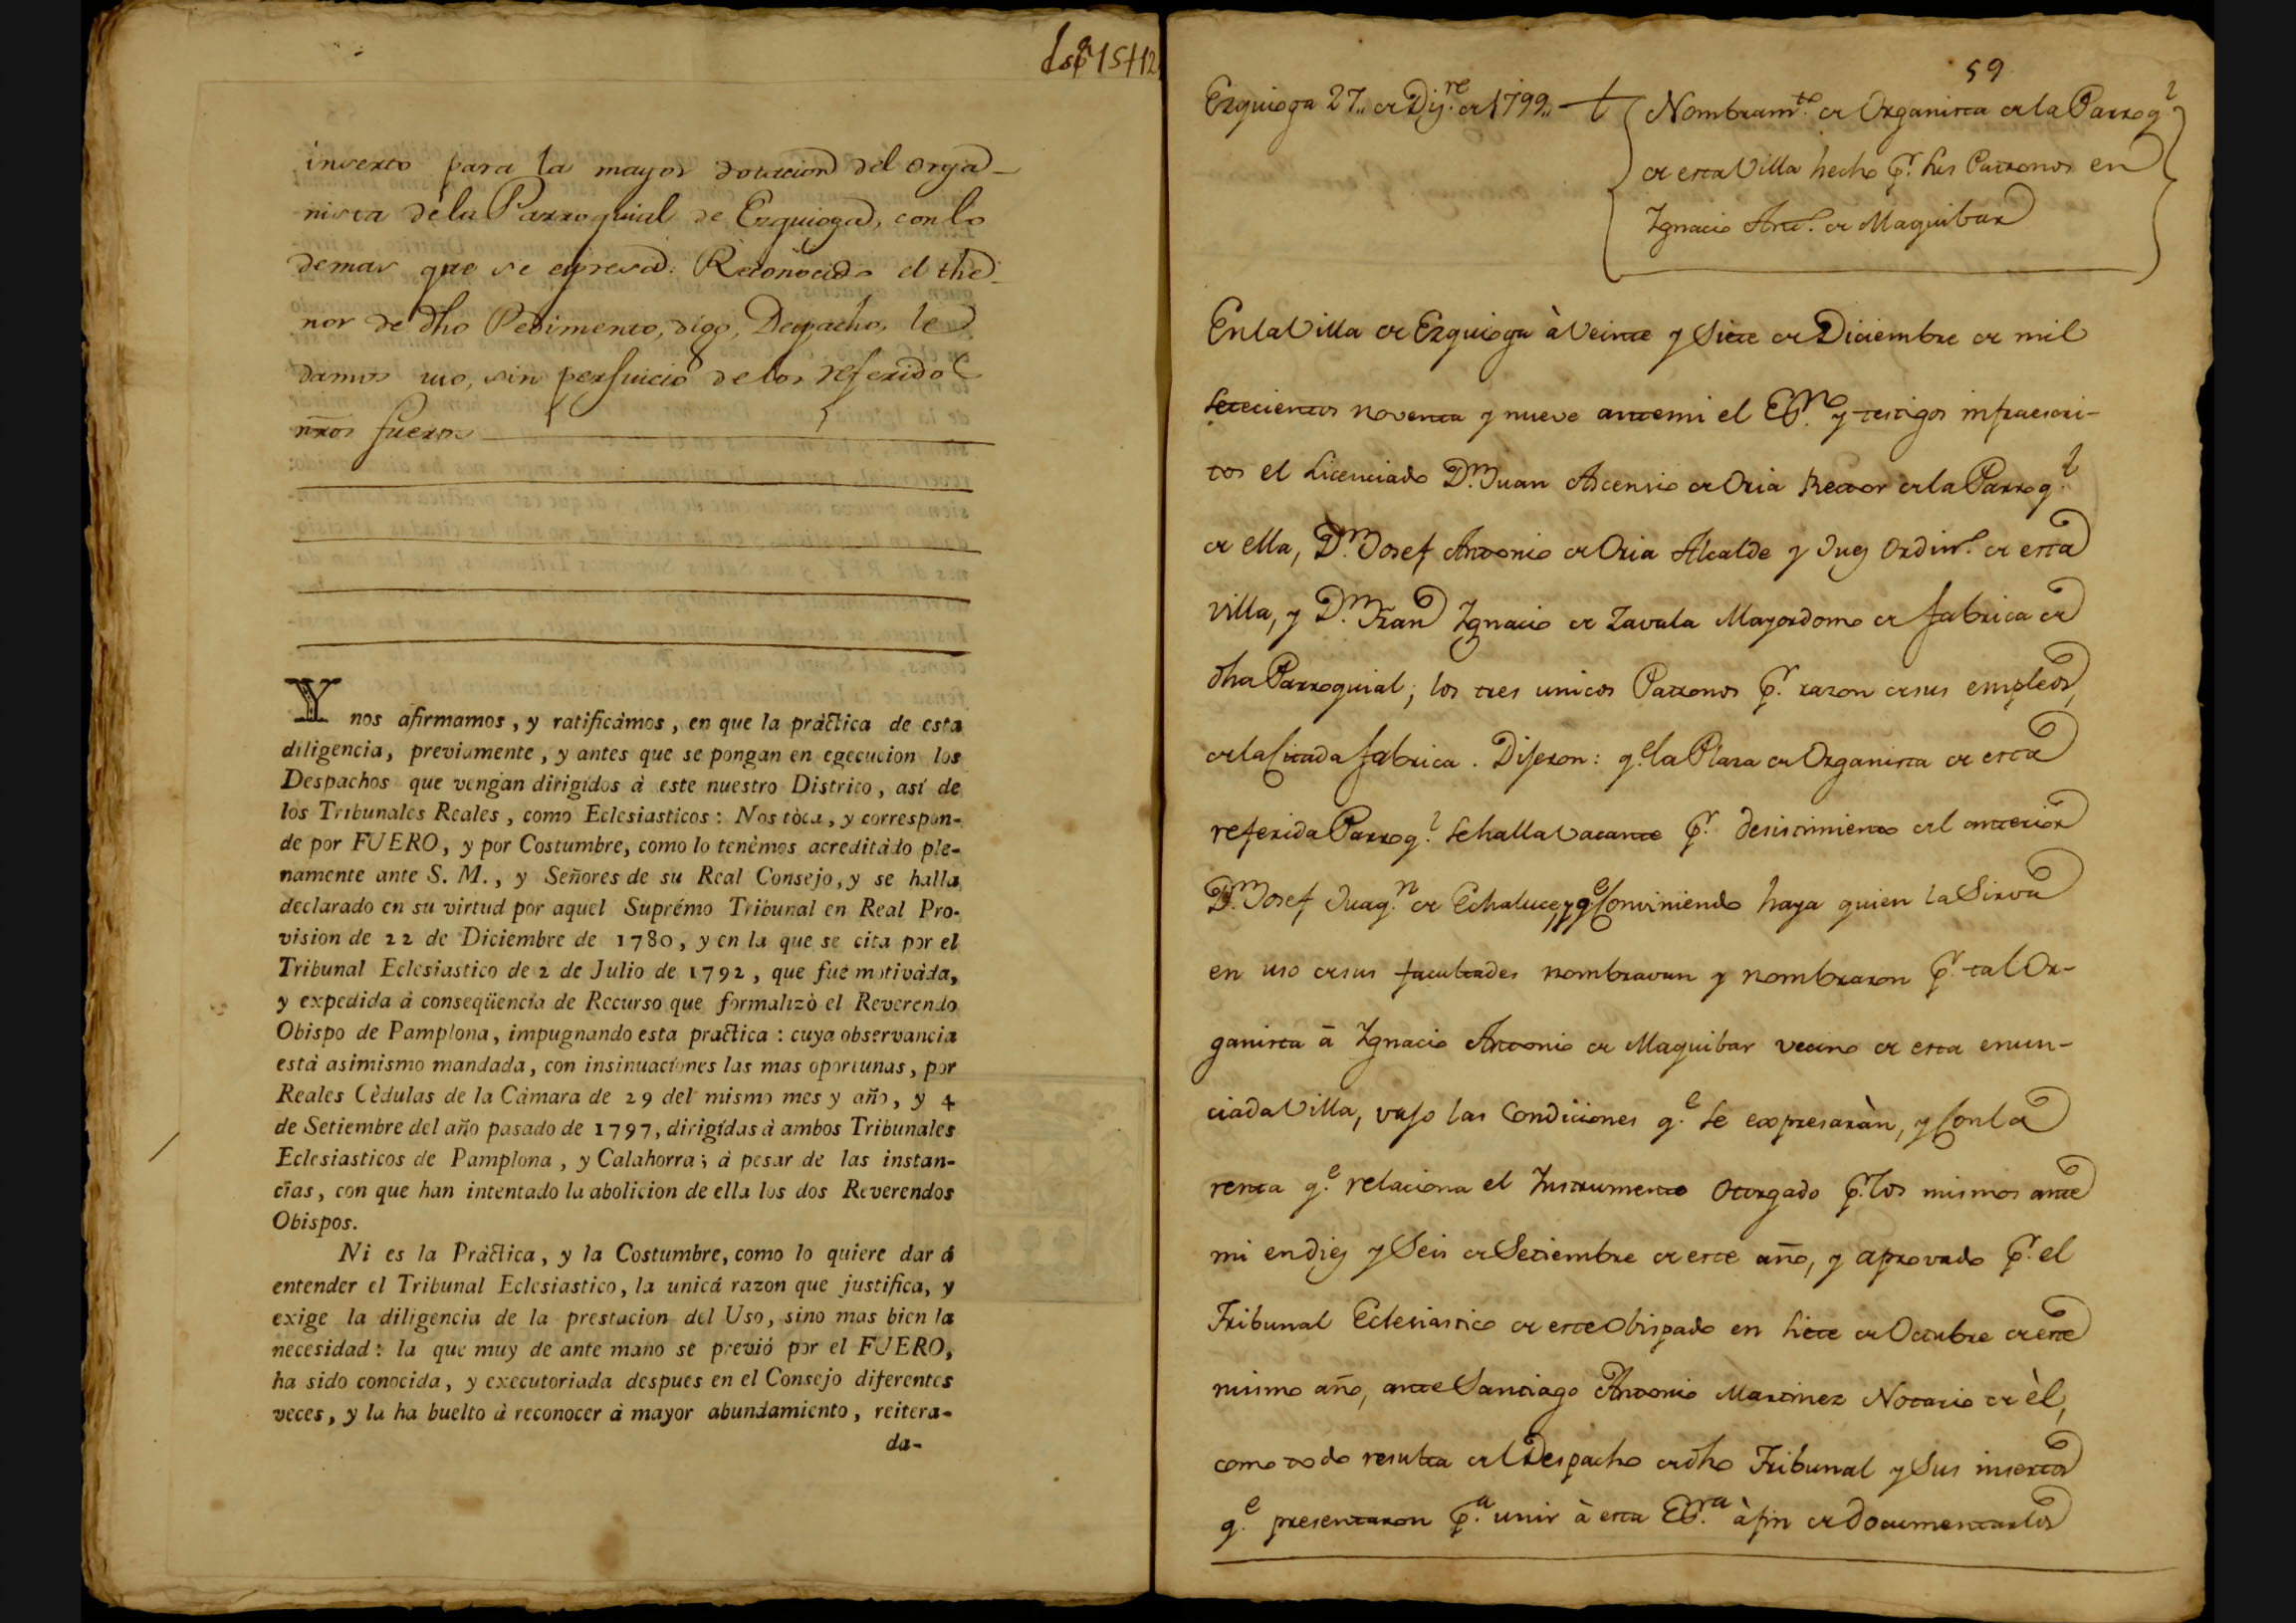 inserto para la mayor dotacion del orga-
nista dela Parroquial de Ezquioga, con lo
demas que se expresa: Reconocido el the-
nor de dho Pedimento, digo, Despacho, le
damos uso, sin perjuicio delos referidos
nros fueros
Y nos afirmamos, y ratificámos, en que la pràctica de esta
diligencia, previamente, y antes que se pongan en egecucion los
Despachos que vengan dirigidos à este nuestro Distrito, así de
los Tribunales Reales, como Eclesiasticos: Nos tòca, y correspon-
de por FUERO, y por Costumbre, como lo tenèmos acreditàdo ple-
namente ante S. M., y Señores de su Real Consejo, y se halla
declarado en su virtud por aquel Suprémo Tribunal en Real Pro-
vision de 22 de Diciembre de 1780, y en la que se cita por el
Tribunal Eclesiastico de 2 de Julio de 1792, que fué motivàda,
y expedida à conseqüencia de Recurso que formalizò el Reverendo
Obispo de Pamplona, impugnando esta practica: cuya observancia
està asimismo mandada, con insinuaciones las mas oportunas, por
Reales Cèdulas de la Càmara de 29 del mismo mes y año, y 4
de Setiembre del año pasado de 1797, dirigídas à ambos Tribunales
Eclesiasticos de Pamplona, y Calahorra; à pesar de las instan-
cias, con que han intentado la abolicion de ella los dos Reverendos
Obispos.
Ni es la Pràctica, y la Costumbre, como lo quiere dar á
entender el Tribunal Eclesiastico, la unicá razon que justifica, y
exige la diligencia de la prestacion del Uso, sino mas bien la
necesidad: la que muy de ante mano se previó por el FUERO,
ha sido conocida, y executoriada despues en el Consejo diferentes
veces, y la ha buelto à reconocer à mayor abundamiento, reitera-
da-
59
Ezquioga 27,, de Dij.re de 1799,, Nombram.to de Organista de la Parroq.l
de esta Villa hecho p.r sus Patronos en
Ignacio Ant.o de Maquibar
En la Villa de Ezquioga à Veinte y Siete de Diciembre de mil
Setecientos noventa y nueve ante mi el Es.no y testigos infraescri-
tos el Licenciado D.n Juan Ascensio de Oria Rector de la Parroq.l
de ella, D.n Josef Antonio de Oria Alcalde y Juez Ordin.o de esta
villa, y D.n Fran Ignacio de Zavala Mayordomo de fabrica de
dha Parroquial; los tres unicos Patronos p.r razon de sus empleos,
de la Citada fabrica. Dijeron: q.e la Plaza de Organista de esta
referida Parroq.l Se halla vacante p.r desistimiento del anterior
D.n Josef Juaq.n de Echaluce, y q.e Conviniendo haya quien la Sirva
en uso de sus facultades nombravan y nombraron p.r tal Or-
ganista à Ignacio Antonio de Maquibar vecino de esta enun-
ciada Villa, vajo las Condiciones q.e Se expresaràn, y Con la
renta q.e relaciona el Instrumento Otorgado p.r los mismos ante
mi en diez y Seis de Setiembre de este año, y aprovado p.r el
Tribunal Eclesiastico de este Obispado en Siete de Octubre de este
mismo año, ante Santiago Antonio Martinez Notario de èl,
como todo resulta del Despacho de dho Tribunal y Sus insertos
q.e presentaron p.a unir à esta Es.ra à fin de documentarlos